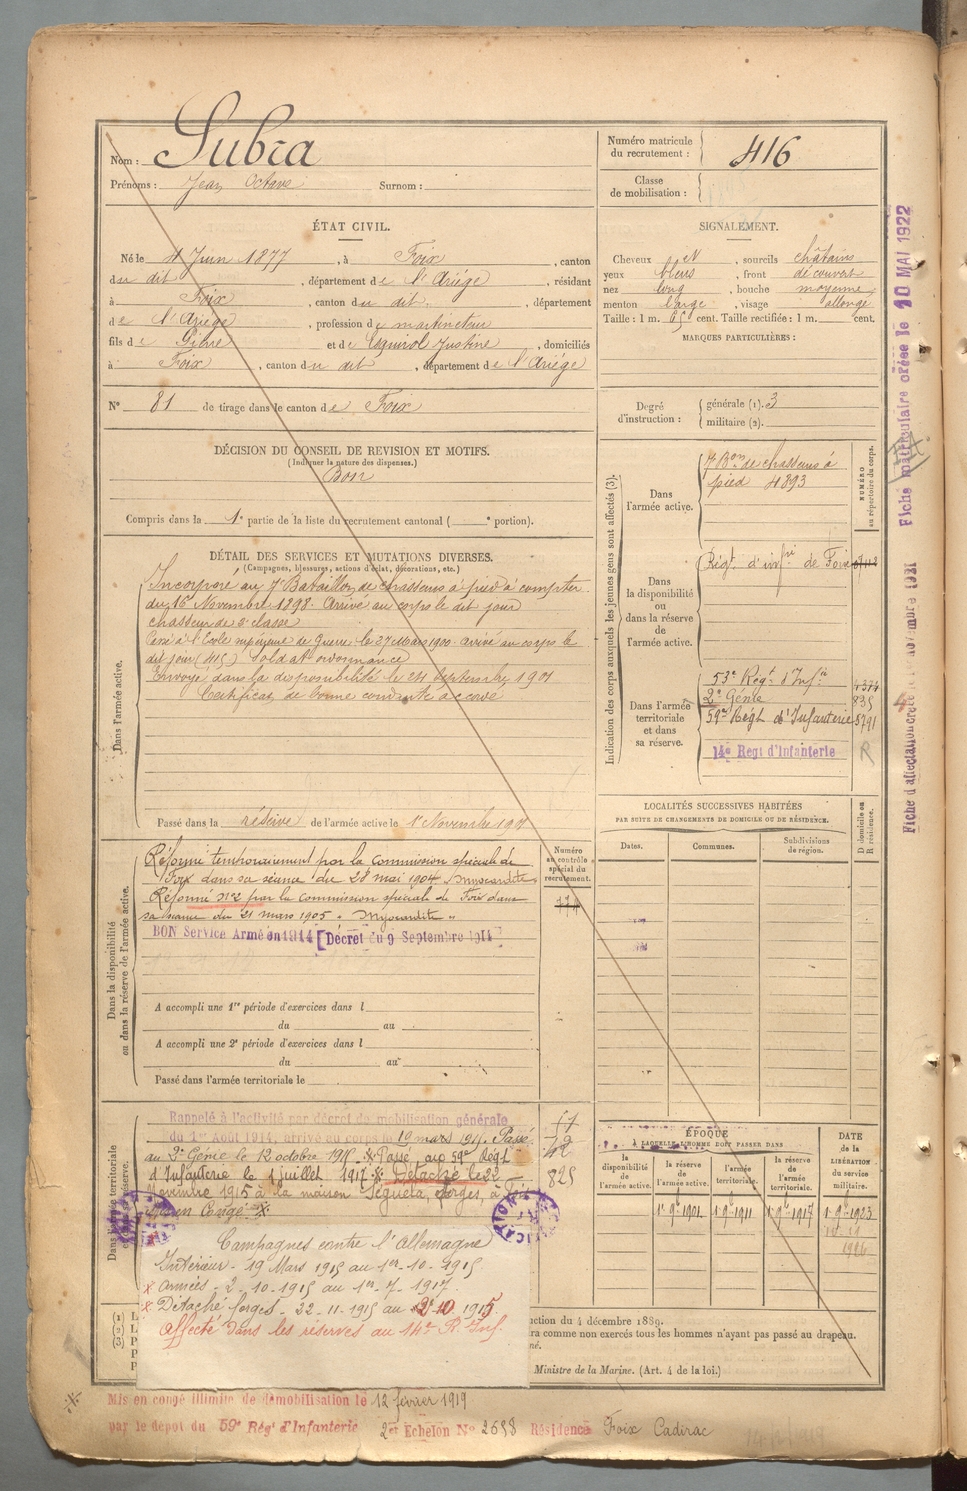 Nom : Subra
Prénoms : Jean Octave Surnom :
Numéro matricule du recrutement : 416
Classe de mobilisation :
ÉTAT CIVIL.
Né le 4 Juin 1877, à Foix, canton
du dit, département de l'Ariège, résidant
à Foix, canton du dit, département
de l'Ariège, profession de martineteur
fils de Gibre et de Justine, domiciliés
à Foix, canton du dit, département de l'Ariège
N° 81 de tirage dans le canton de Foix
SIGNALEMENT.
Cheveux, sourcils châtains
yeux bleus, front découvert
nez long, bouche moyenne
menton large, visage allongé
Taille : 1 m. 65 cent. Taille rectifiée : 1 m. cent.
MARQUES PARTICULIÈRES :
Degré d'instruction : générale (1). 3
militaire (2).
DÉCISION DU CONSEIL DE REVISION ET MOTIFS.
(Indiquer la nature des dispenses.)
Bon
Compris dans la 1e partie de la liste du recrutement cantonal ( e portion).
DÉTAIL DES SERVICES ET MUTATIONS DIVERSES.
(Campagnes, blessures, actions d'éclat, décorations, etc.)
Dans l'armée active.
Incorporé au 7e Bataillon de chasseurs à pied à compter
du 16 Novembre 1898. Arrivé au corps le dit jour
chasseur de 2e classe
Passé à l'Ecole supérieure de Guerre le 27 Mars 1900. arrivé au corps le
dit jour (415) Soldat ordonnance
Envoyé dans la disponibilité le 24 Septembre 1901
Certificat de bonne conduite accordé
Passé dans la réserve de l'armée active le 1er Novembre 1901
Indication des corps auxquels les jeunes gens sont affectés (3).
Dans l'armée active.
7 Bon de chasseurs à
pied 4893
NUMÉRO au répertoire du corps.
Dans la disponibilité ou dans la réserve de l'armée active.
Régt d'infrie de Foix
Dans l'armée territoriale et dans sa réserve.
53e Régt d'Infie 4374
2e Génie 835
59me Régt d'Infanterie 5791
14e Régt d'Infanterie R
LOCALITÉS SUCCESSIVES HABITÉES
PAR SUITE DE CHANGEMENTS DE DOMICILE OU DE RÉSIDENCE.
Dates. Communes. Subdivisions de région. D domicile ou R résidence.
Dans la disponibilité ou dans la réserve de l'armée active.
Réformé temporairement par la commission spéciale de
Foix dans sa séance du 28 mai 1904 "Myocardite"
Réformé n°2 par la commission spéciale de Foix dans
sa séance du 21 mars 1905 "Myocardite"
BON Service Armé en 1914 [Décret du 9 Septembre 1914]
Numéro au contrôle spécial du recrutement.
A accompli une 1re période d'exercices dans l
du au
A accompli une 2e période d'exercices dans l
du au
Passé dans l'armée territoriale le
Dans l'armée territoriale
Rappelé à l'activité par décret de mobilisation générale
du 1er Août 1914, arrivé au corps le 19 mars Passé
au 2e Génie le 12 octobre Passé au 59e Régt
d'Infanterie le 1 juillet 1917 Détaché le 22
Novembre 1915 à la maison forges, à Foix
825
Campagnes contre l'Allemagne
Intérieur - 19 Mars 1915 au 1er-10-1915
x Armées - 2-10-1915 au 1er-7-1917
x Détaché forges - 22-11-1915 au
affecté dans les réserves au 14e R. Inf.
ÉPOQUE
A LAQUELLE L'HOMME DOIT PASSER DANS
la disponibilité de l'armée active. la réserve de l'armée active. l'armée territoriale. la réserve de l'armée territoriale.
DATE de la LIBÉRATION du service militaire.
1er 9bre 1901 1er 9bre 1911 1er 9bre 1917 1er 9bre 1923
(1)
(2)
(3)
uction du 4 décembre 1889.
ra comme non exercés tous les hommes n'ayant pas passé au drapeau.
né.
Ministre de la Marine. (Art. 4 de la loi.)
Mis en congé illimité de démobilisation le 12 février 1919
par le dépôt du 59e Régt d'Infanterie 2e Echelon N° 2658 Résidence Foix Cadirac
Fiche matriculaire créée le 10 MAI 1922